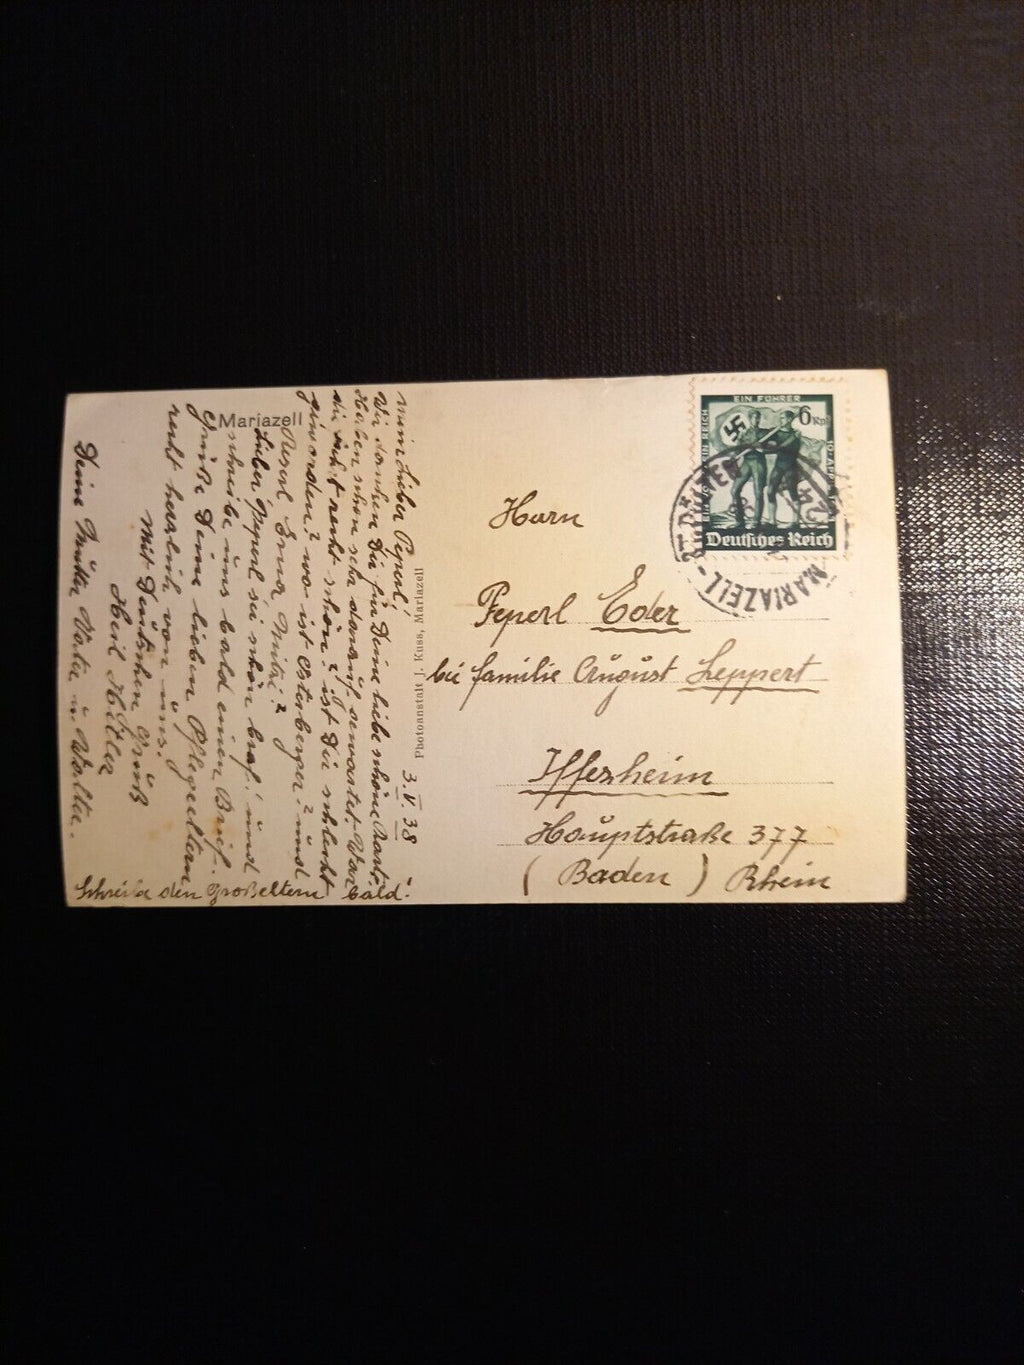 Mariazell
3.V.38
Mein lieber Peperl!
Wir danken Dir für Deine liebe schöne Karte.
Haben schon sehr darauf gewartet. War
die recht schön? ist Dir schlecht
geworden? wo ist Osterberger? und
Reserl Erna Mitzi?
Lieber Peperl sei schön brav! und
schreibe uns bald einen Brief.
Grüße Deine lieben Pflegeeltern
recht herzlich von uns.
Mit Deutschen Gruß
Heil Hitler
Deine Mutter Vater u. Walter.
Schreibe den Großeltern bald!
Photoanstalt J. Kuss, Mariazell
EIN FÜHRER
6 Rpf
EIN REICH
Deutsches Reich
MARIAZELL
Herrn
Peperl Eder
bei Familie August Leppert
Iffezheim
Hauptstraße 377
(Baden) Rhein